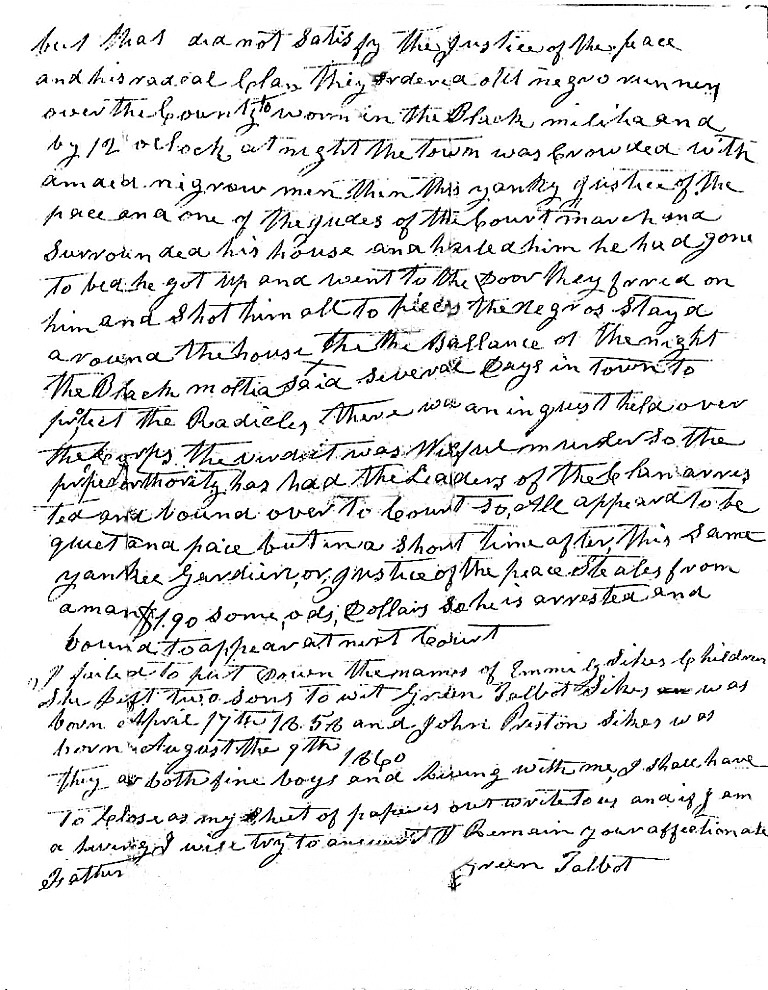 but that did not satisfy the Justice of the peace
and his radcal Clan they ordered old negro runners
over the County to worn in the Black militia and
by 12 oclock at night the town was Crowded with
armded nigrow men then this yanky Justice of the
peace and one of the judes of the Court march and
Surrounded his house and hailed him he had gone
to bed he got up and went to the Door they fired on
him and Shot him all to pieces the negros Stayd
around the house the the Ballance of the night
the Black molita Said Several Days in town to
protect the Radicles there was an inquest held over
the Corps the verdict was Wilful murder So the
proper authority has had the Leaders of the Clan arres
ted and bound over to Court So All appeard to be
quiet and pace but in a Short time after, this Same
yankee or, Justice of the peace Steales from
a man $190 Some, ods, Dollars So he is arrested and
bound to appear at next Court
I failed to put Down the names of Emmily Sikes Children
She Left two Sons to wit Green Talbot Sikes was
born April 17th 1858 and John Preston Sikes was
born August the 9th 1860
they ar both fine boys and Living with me, I Shall have
To Close as my Sheet of paper is out write to us and if I am
a living I wise try to answer it I Remain your affectionate
Father Green Talbot